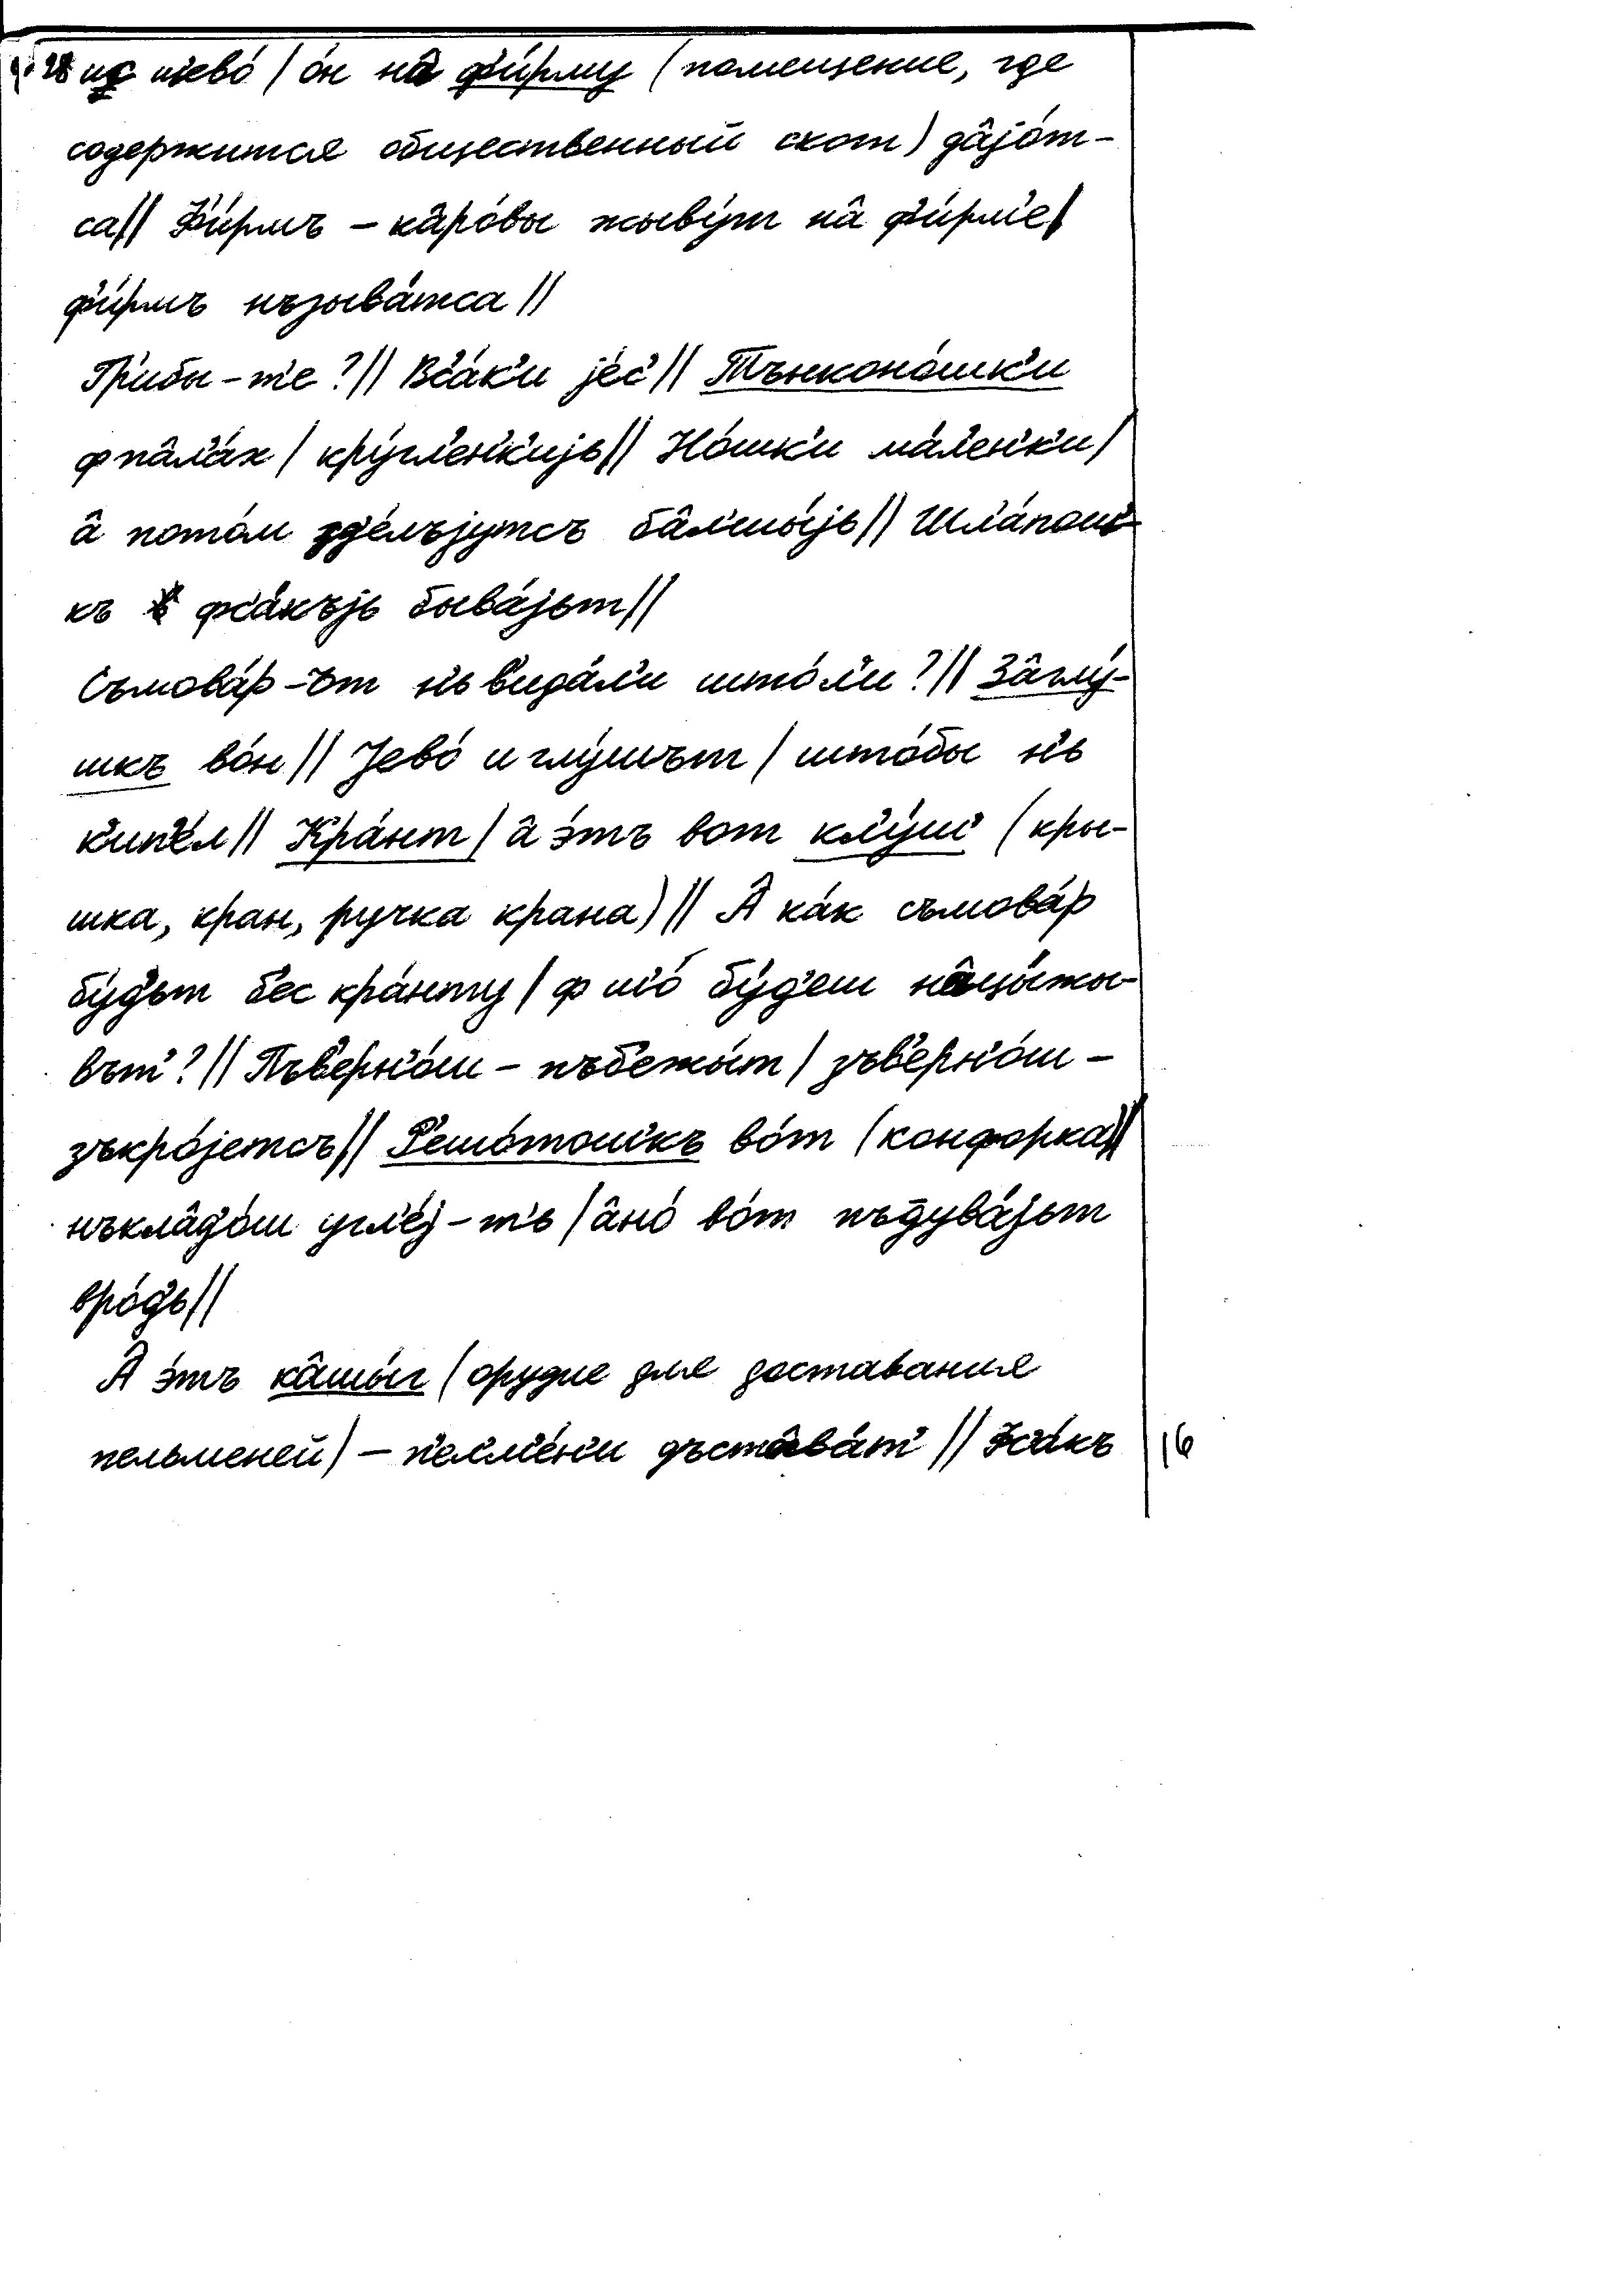 28 ис ш'евó / óн нâ ф'и́рму (помещение, где
содержится общественный скот) дâjóт-
са// Ф'и́рмъ – кâрóвы жыву́т нâ ф'и́рм'е/
ф'и́рмъ нъзывáтса //
Гр'ибы-т'е?// Вс'áк'и jéс'// Тънконóшк'и
ф пâл'áх / кру́гл'ен'к'иjь// Нóшк'и мáл'ен'к'и/
â потóм зд'éлъjутсъ бâл'шы́jь// Шл'áпош'-
къ фс'áкъjь бывájьт//
Съмовáр-ът н'ь в'идáл'и штóл'и?// Зâглу́-
шкъ вóн// Jевó и глу́шът / штóбы н'ь
к'ип'éл// Крáнт / â э́тъ вот кл'у́ш' (кры-
шка, кран, ручка крана)// Â кáк съмовáр
бу́д'ьт б'ес крáнту / ф ш'ó бу́д'еш нâцы́жы-
вът'?// Пъв'ерн'óш – пъб'ежы́т / зъв'ерн'óш –
зъкрójетсъ// Р'ешóтош'къ вóт (конфорка)//
нъклâд'óш угл'éj-т'ь / âнó вóт пъдувájьт
врóд'ь//
Â э́тъ кâшы́г (орудие для доставания
пельменей) – п'ел'м'éн'и дъстâвáт' // Фс'áкъ
16